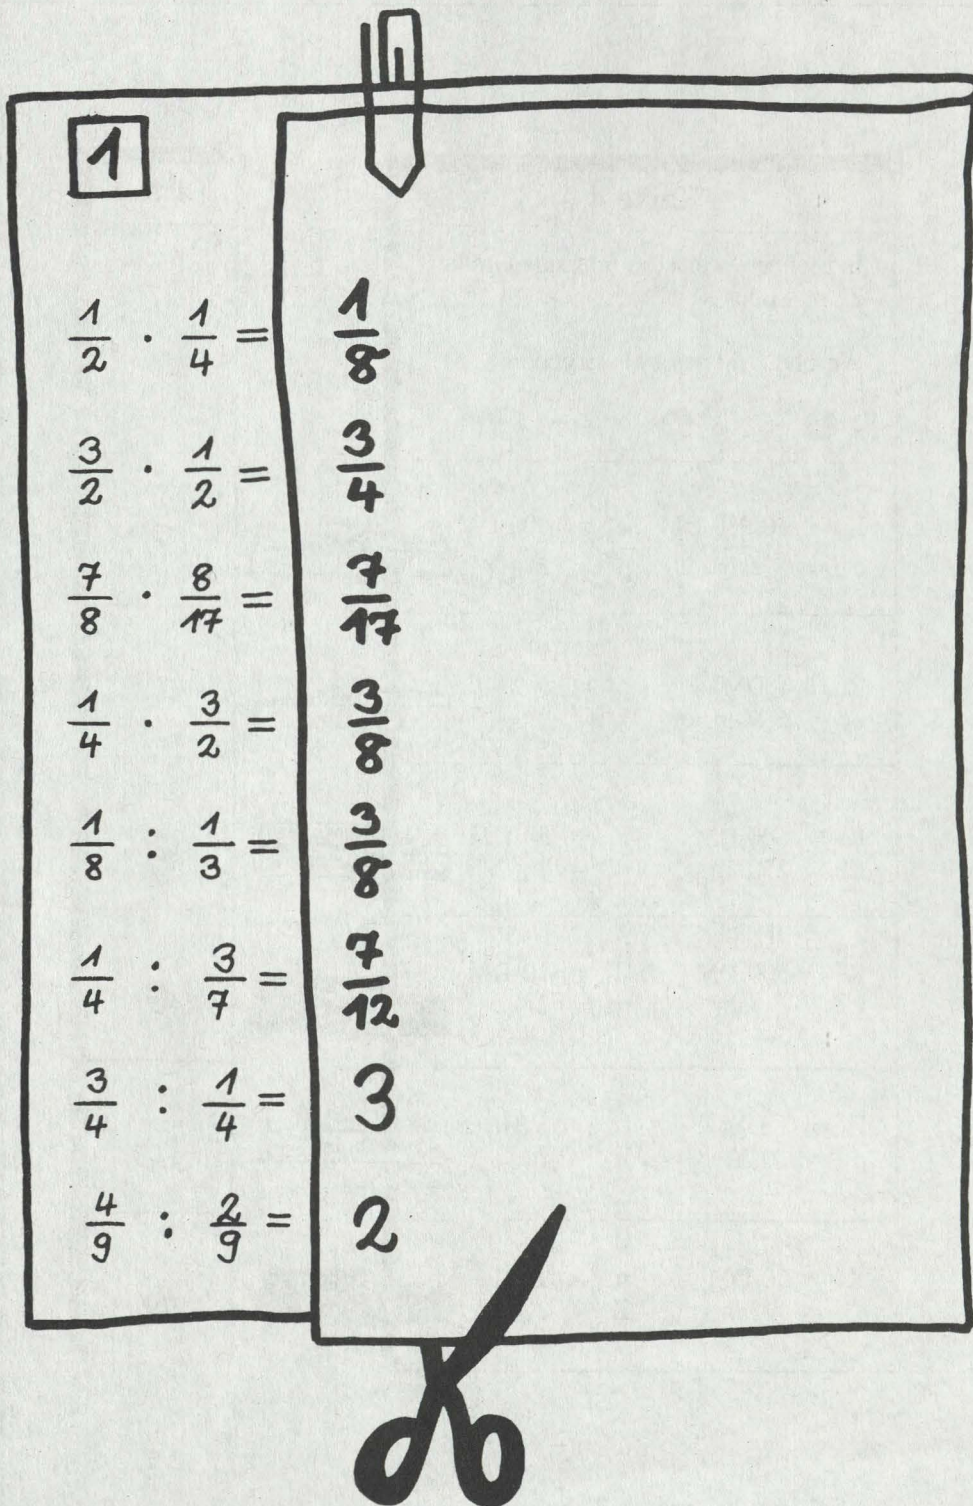 1
1/2 · 1/4 = 1/8
3/2 · 1/2 = 3/4
7/8 · 8/17 = 7/17
1/4 · 3/2 = 3/8
1/8 : 1/3 = 3/8
1/4 : 3/7 = 7/12
3/4 : 1/4 = 3
4/9 : 2/9 = 2